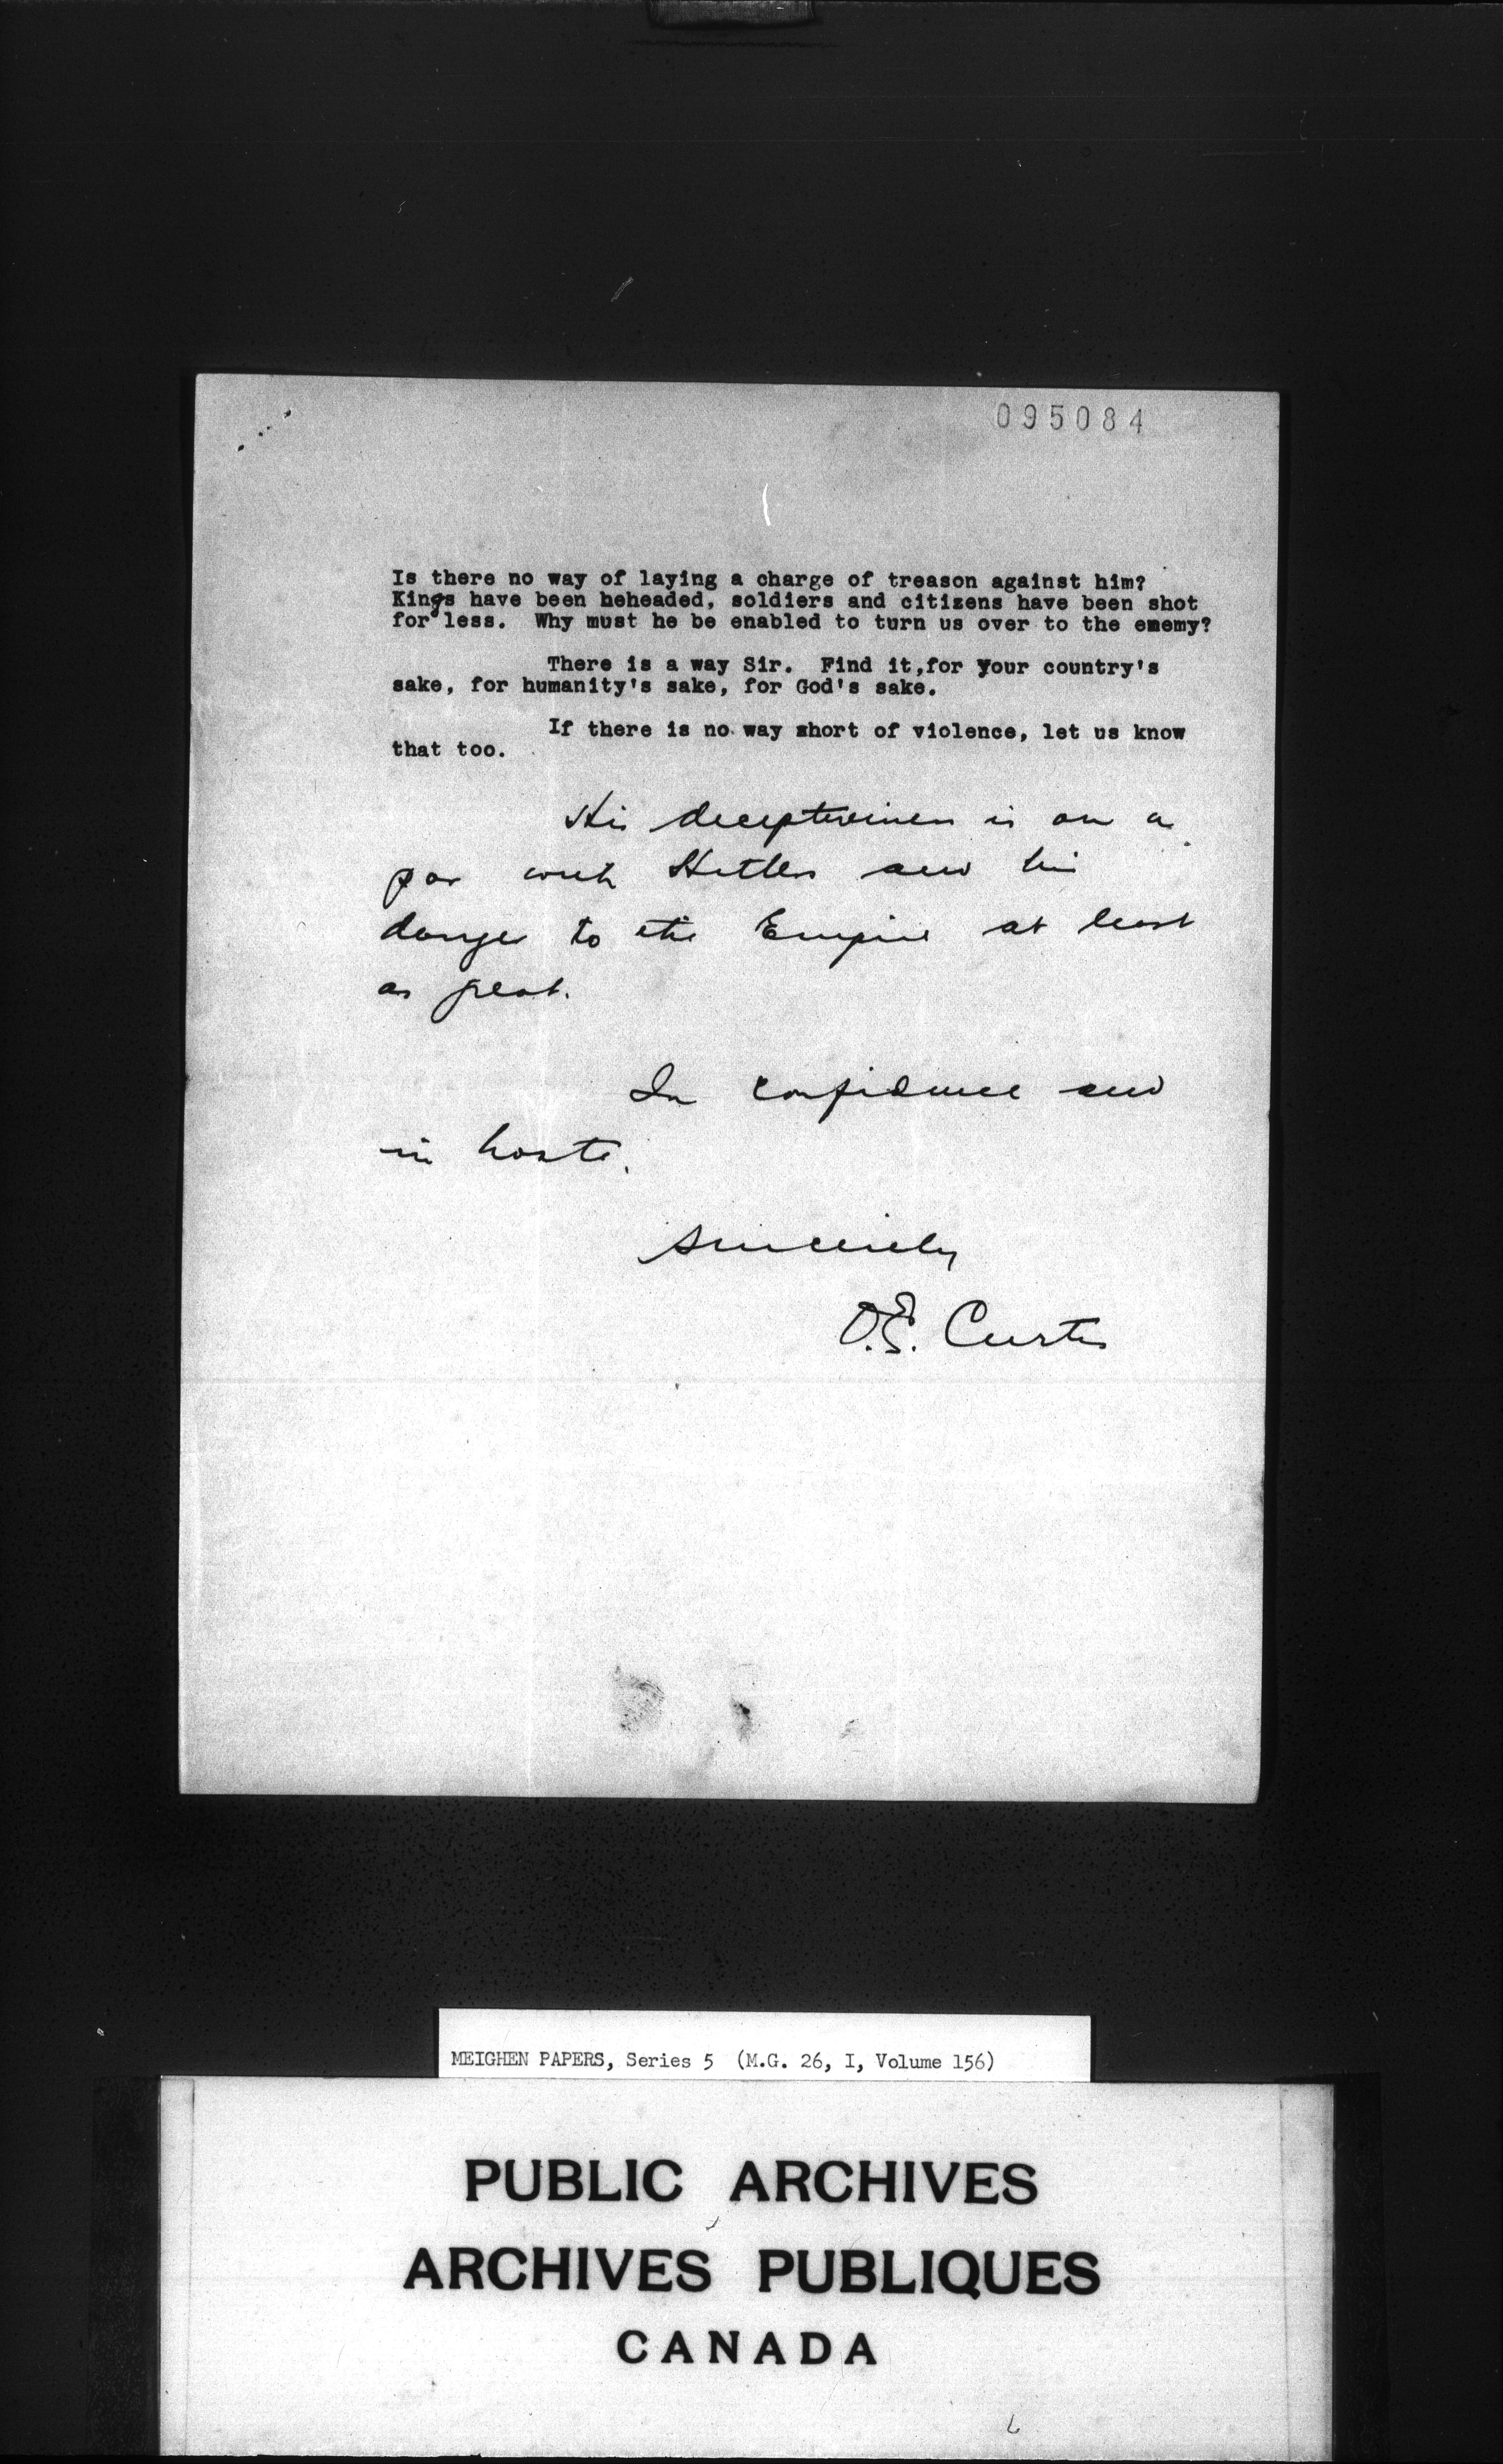 095084
Is there no way of laying a charge of treason against him?
Kings have been heheaded, soldiers and citizens have been shot
for less. Why must he be enabled to turn us over to the enemy?
There is a way Sir. Find it,for your country's
sake, for humanity's sake, for God's sake.
If there is no way short of violence, let us know
that too.
His deceptiveness is on a
par with Hitler and his
danger to the Empire at least
as great.
In confidence and
in haste.
Sincerely
O.E. Curtis
MEIGHEN PAPERS, Series 5 (M.G. 26, I, Volume 156)
PUBLIC ARCHIVES
ARCHIVES PUBLIQUES
CANADA